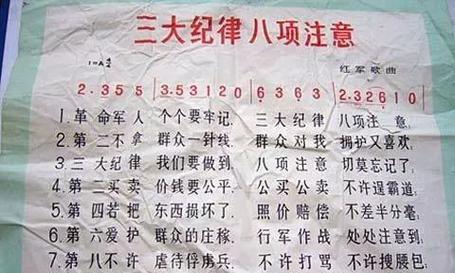 三大纪律八项注意
1=A 4/4
红军歌曲
2.35 5 3.53120 6 3 6 3 2.32610
1.革命军人 个个要牢记. 三大纪律 八项注意;
2.第二不拿 群众一针线. 群众对我 拥护又喜欢;
3.三大纪律 我们要做到. 八项注意 切莫忘记了;
4.第二买卖 价钱要公平. 公买公卖 不许逞霸道;
5.第四若把 东西损坏了. 照价赔偿 不差半分毫;
6.第六爱护 群众的庄稼. 行军作战 处处注意到;
7.第八不许 虐待俘虏兵. 不许打骂 不许搜腰包;